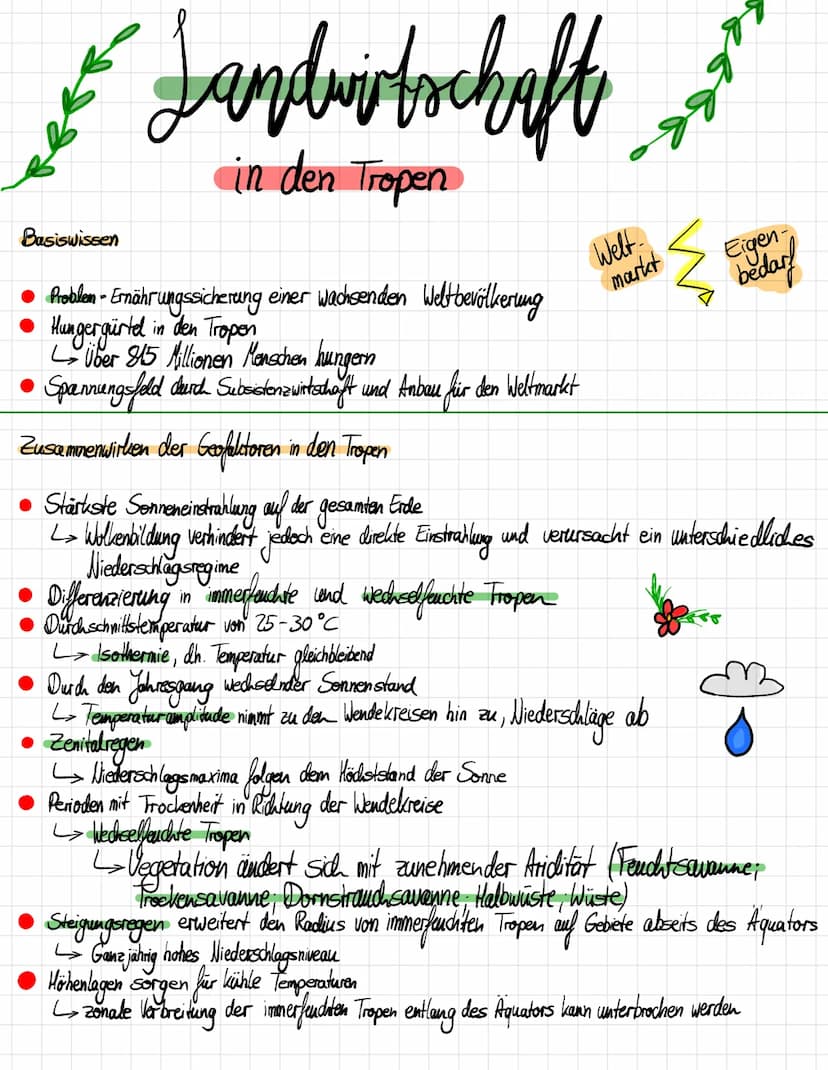 Landwirtschaft
in den Tropen
Basiswissen
Welt-
markt
Eigen-
bedarf
Problem - Ernährungssicherung einer wachsenden Weltbevölkerung
Hungergürtel in den Tropen
↳ Über 815 Millionen Menschen hungern
Spannungsfeld durch Subsistenzwirtschaft und Anbau für den Weltmarkt
Zusammenwirken der Geofaktoren in den Tropen
Stärkste Sonneneinstrahlung auf der gesamten Erde
↳ Wolkenbildung verhindert jedoch eine direkte Einstrahlung und verursacht ein unterschiedliches
Niederschlagsregime
Differenzierung in immerfeuchte und wechselfeuchte Tropen
Durchschnittstemperatur von 25-30°C
↳ Isothermie, d.h. Temperatur gleichbleibend
Durch den Jahresgang wechselnder Sonnenstand
↳ Temperaturamplitude nimmt zu den Wendekreisen hin zu, Niederschläge ab
Zenitalregen
↳ Niederschlagsmaxima folgen dem Höchststand der Sonne
Perioden mit Trockenheit in Richtung der Wendekreise
↳ Wechselfeuchte Tropen
↳ Vegetation ändert sich mit zunehmender Aridität (Feuchtsavanne;
Trockensavanne; Dornstrauchsavanne; Halbwüste; Wüste)
Steigungsregen erweitert den Radius von immerfeuchten Tropen auf Gebiete abseits des Äquators
↳ Ganzjährig hohes Niederschlagsniveau
Höhenlagen sorgen für kühle Temperaturen
↳ zonale Verbreitung der immerfeuchten Tropen entlang des Äquators kann unterbrochen werden